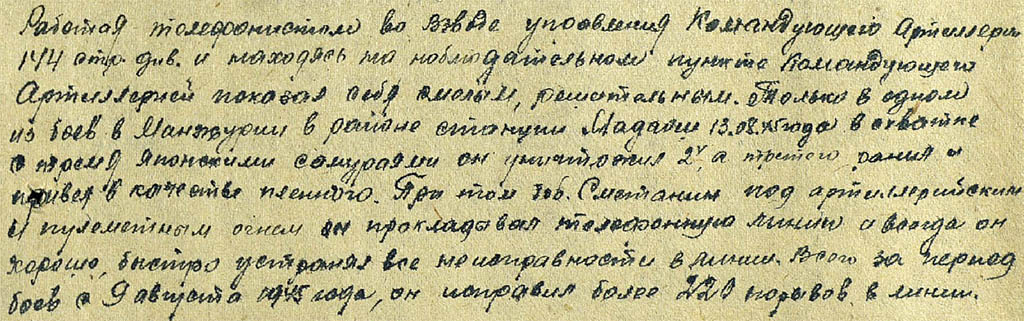 Работая телефонистом во взводе управления Командующего Артиллерии
144 стр. див. и находясь на наблюдательном пункте Командующего
Артиллерией показал себя смелым, решительным. Только в одном
из боев в Манжурии в районе станции Мадаоши 13.08.45 года в схватке
с тремя японскими самураями он уничтожил 2х а третьего ранил и
привел в качестве пленного. При том тов. Сметанин под артиллерийским
и пулеметным огнем он прокладывал телефонную линию и всегда он
хорошо, быстро устранял все неисправности в линии. Всего за период
боев с 9 августа 1945 года, он исправил более 220 порывов в линии.